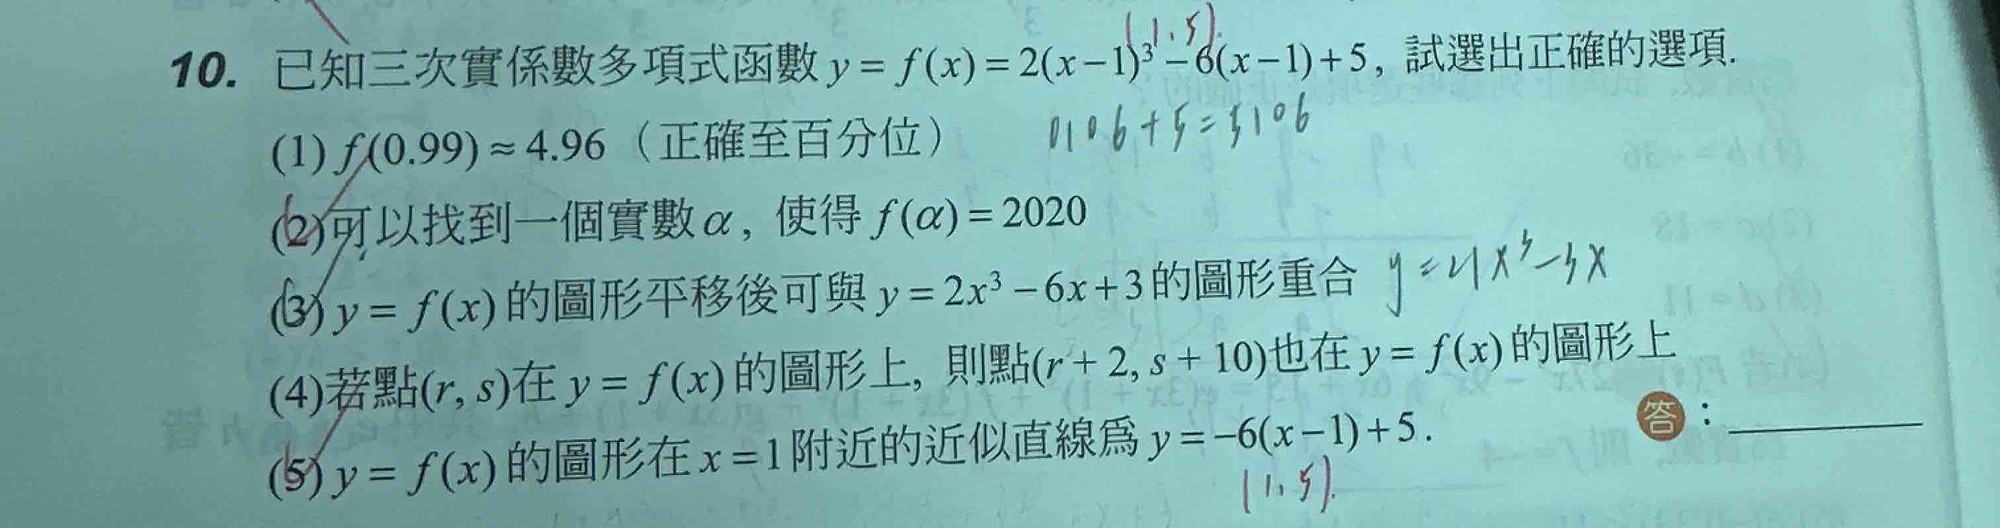 10. 已知三次實係數多項式函數 y = f(x) = 2(x−1)³ −6(x−1)+5, 試選出正確的選項.
(1,5)
(1) f(0.99) ≈ 4.96（正確至百分位）
(2)可以找到一個實數α, 使得 f(α) = 2020
(3) y = f(x) 的圖形平移後可與 y = 2x³ − 6x + 3 的圖形重合
(4)若點(r, s)在 y = f(x) 的圖形上, 則點(r + 2, s + 10)也在 y = f(x) 的圖形上
(5) y = f(x) 的圖形在 x = 1 附近的近似直線為 y = −6(x−1) + 5.
答：
(1,5).